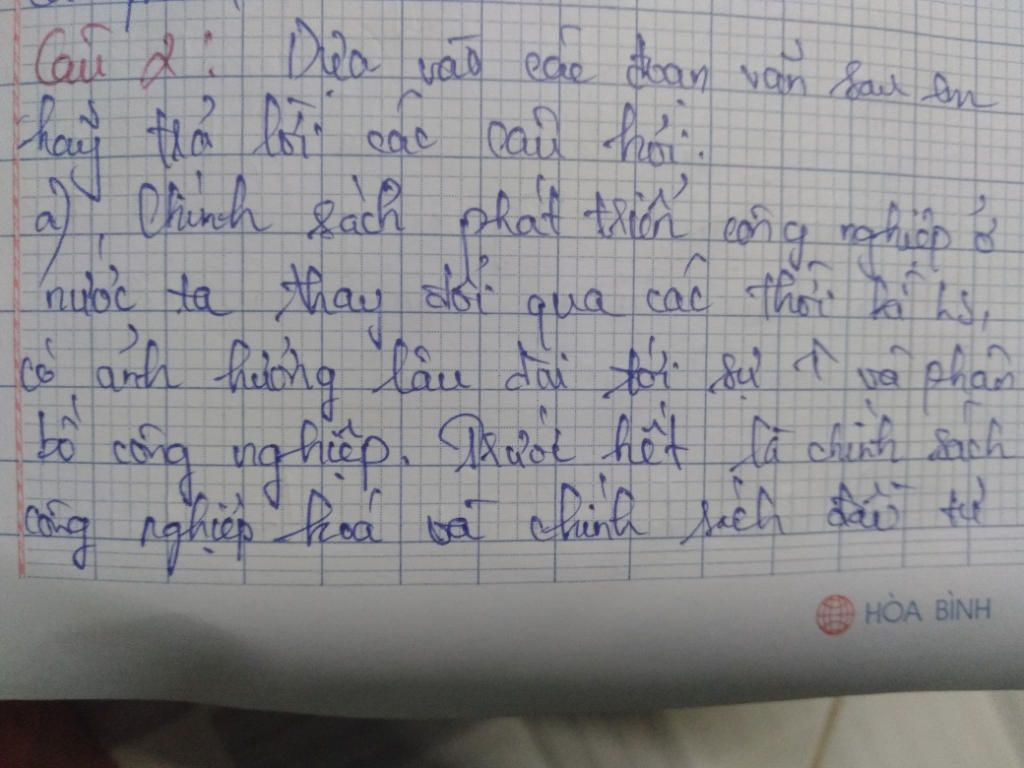 Câu 2: Dựa vào các đoạn văn sau em
hãy trả lời các câu hỏi:
a) Chính sách phát triển công nghiệp ở
nước ta thay đổi qua các thời kì LS,
có ảnh hưởng lâu dài tới sự ↑ và phân
bố công nghiệp. Trước hết là chính sách
công nghiệp hoá và chính sách đầu tư
HÒA BÌNH